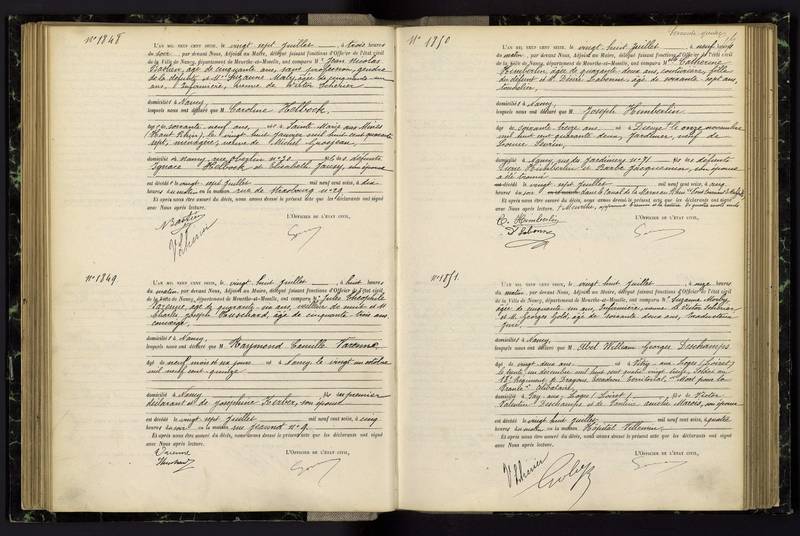 N° 1848
L'AN MIL NEUF CENT SEIZE, le vingt sept juillet, à trois heures
du soir, par devant Nous, Adjoint au Maire, délégué faisant fonctions d'Officier de l'état civil
de la Ville de Nancy, département de Meurthe-et-Moselle, ont comparu M. Jean Nicolas
âgé de cinquante ans, sans profession, gendre
de la défunte et Mme Suzanne Maly, âgée de cinquante un
ans, infirmière,
domicilié à Nancy
lesquels nous ont déclaré que M. Caroline Helbock
âgé de soixante neuf ans, né à Sainte Marie aux Mines
(Haut Rhin), le vingt huit janvier mil huit cent quarante
sept, ménagère, veuve de Michel Grosjean
domiciliée à Nancy, rue Oberlin n° 20, fille des défunts
Ignace Helbock et Elisabeth Jansy, son épouse
est décédé le vingt sept juillet mil neuf cent seize, à dix
heures du matin en la maison rue de Strasbourg n° 29
Et après nous être assuré du décès, nous avons dressé le présent acte que les déclarants ont signé
avec Nous après lecture.
L'OFFICIER DE L'ÉTAT CIVIL,
N° 1849
L'AN MIL NEUF CENT SEIZE, le vingt huit juillet, à huit heures
du matin, par devant Nous, Adjoint au Maire, délégué faisant fonctions d'Officier de l'état civil
de la Ville de Nancy, département de Meurthe-et-Moselle, ont comparu M. Jules Théophile
âgé de quarante six ans, veilleur de nuit et M.
Charles Joseph âgé de cinquante trois ans,
concierge,
domicilié à Nancy
lesquels nous ont déclaré que M. Raymond Camille
âgé de neuf mois né à Nancy le vingt un octobre
mil neuf cent quinze
domicilié à Nancy fils du premier
déclarant et de Joséphine Kerber, son épouse
est décédé le vingt sept juillet mil neuf cent seize, à cinq
heures du soir en la maison rue Jeannot n° 9
Et après nous être assuré du décès, nous avons dressé le présent acte que les déclarants ont signé
avec Nous après lecture.
L'OFFICIER DE L'ÉTAT CIVIL,
N° 1850
L'AN MIL NEUF CENT SEIZE, le vingt huit juillet, à neuf heures
du matin, par devant Nous, Adjoint au Maire, délégué faisant fonctions d'Officier de l'état civil
de la Ville de Nancy, département de Meurthe-et-Moselle, ont comparu Mlle Catherine
Himberlin, âgée de quarante deux ans, couturière, fille
du défunt et M. Désiré Dabonne, âgé de soixante sept ans,
tonnelier,
domicilié à Nancy
lesquels nous ont déclaré que M. Joseph Himberlin
âgé de soixante treize ans né à Dieuze le onze novembre
mil huit cent quarante deux, jardinier, veuf de
domicilié à Nancy, rue de Jardiniers n° 71 fils des défunts
Pierre Himberlin et Barbe Jacquemin, son épouse
a été trouvé
est décédé le vingt sept juillet mil neuf cent seize, à cinq
heures du soir dans le canal de la Marne au Rhin
Et après nous être assuré du décès, nous avons dressé le présent acte que les déclarants ont signé
avec Nous après lecture.
C. Himberlin
L'OFFICIER DE L'ÉTAT CIVIL,
N° 1851
L'AN MIL NEUF CENT SEIZE, le vingt huit juillet, à onze heures
du matin, par devant Nous, Adjoint au Maire, délégué faisant fonctions d'Officier de l'état civil
de la Ville de Nancy, département de Meurthe-et-Moselle, ont comparu Mme Suzanne Maly
âgée de cinquante un ans, infirmière, veuve de Victor
et M. Georges Golz, âgé de soixante deux ans, traducteur
juré,
domicilié à Nancy
lesquels nous ont déclaré que M. Abel William Georges Deschamps
âgé de vingt deux ans né à Vitry aux Loges (Loiret)
le trente un décembre mil huit cent quatre vingt treize, soldat au
Régiment de Dragons, Escadron Territorial, "Mort pour la
France" célibataire,
domicilié à Fay aux Loges (Loiret) fils de Victor
Valentin Deschamps et de Pauline Amélie Marois, son épouse
est décédé le vingt huit juillet mil neuf cent seize, à quatre
heures du matin en la maison Hôpital Villemin
Et après nous être assuré du décès, nous avons dressé le présent acte que les déclarants ont signé
avec Nous après lecture.
L'OFFICIER DE L'ÉTAT CIVIL,